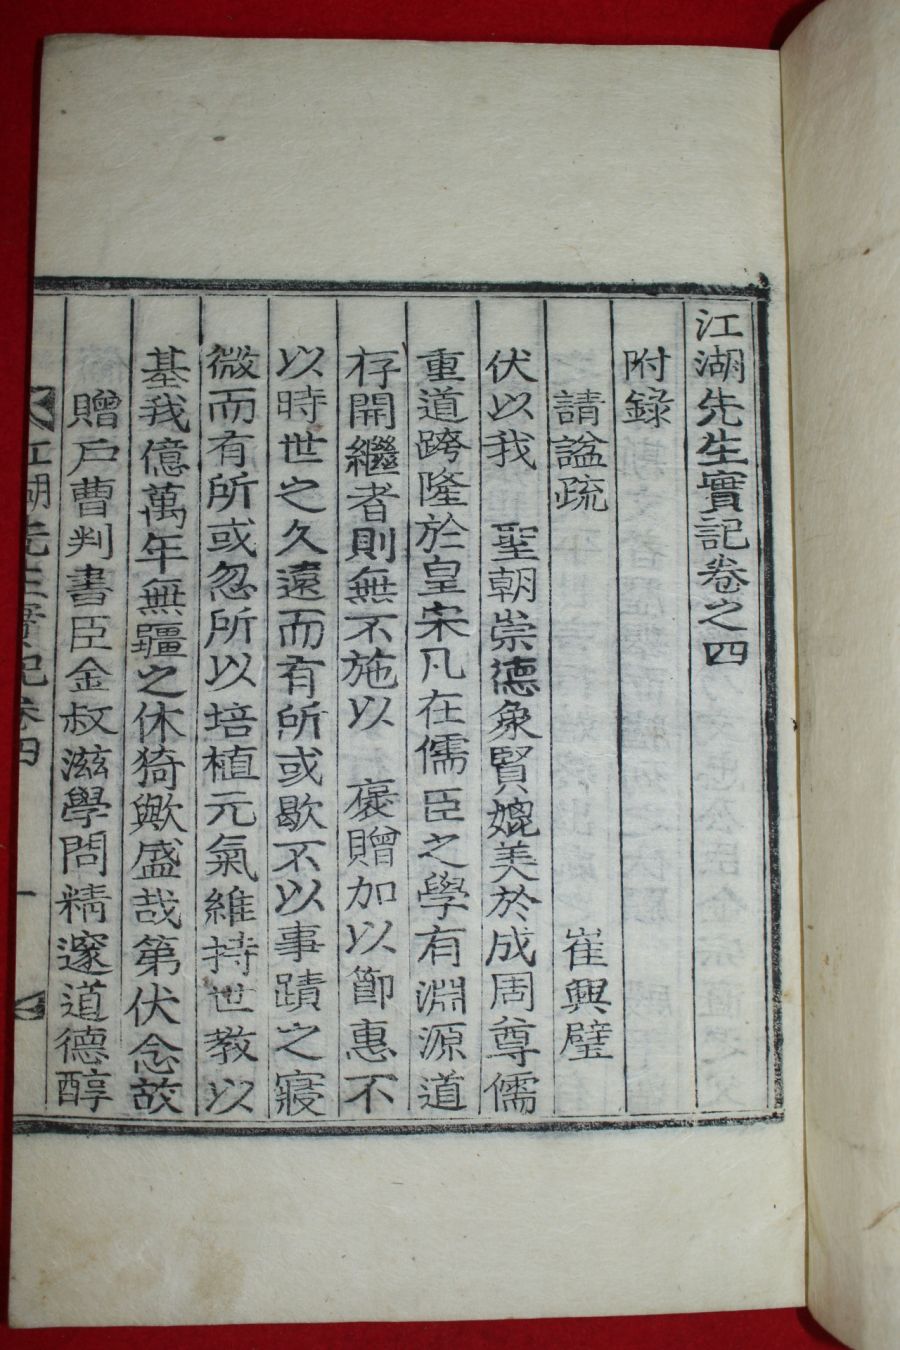 江湖先生實記卷之四
附錄
請謚疏 崔興璧
伏以我 聖朝崇德象賢媲美於成周尊儒
重道跨隆於皇宋凡在儒臣之學有淵源道
存開繼者則無不施以 褒贈加以節惠不
以時世之久遠而有所或歇不以事蹟之寢
微而有所或忽所以培植元氣維持世教以
基我億萬年無疆之休猗歟盛哉第伏念故
贈戶曹判書臣金叔滋學問精邃道德醇
江湖先生實記卷四 一